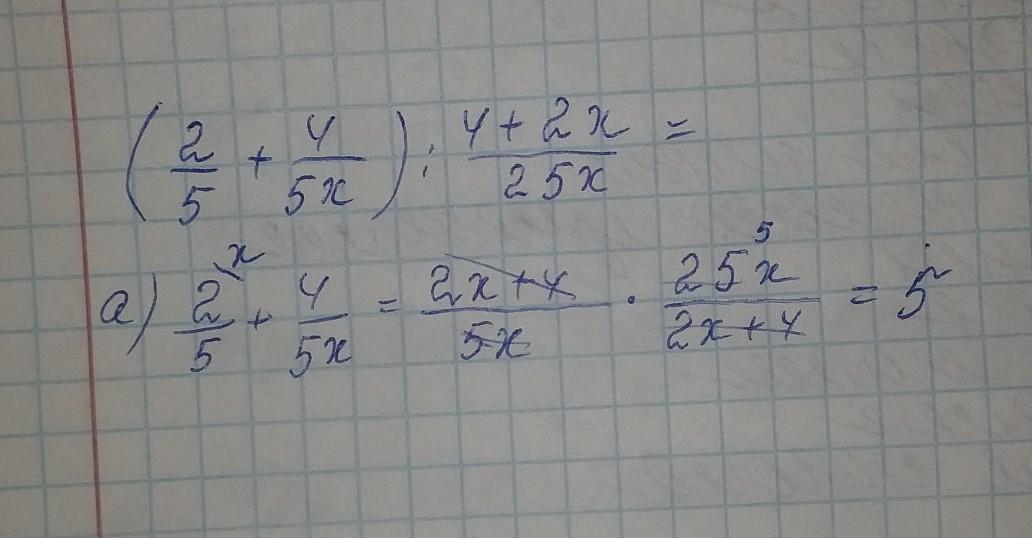 (2/5 + 4/5x) : 4+2x/25x =
a) 2/5 x + 4/5x = 2x+4/5x · 25x/2x+4 5 = 5